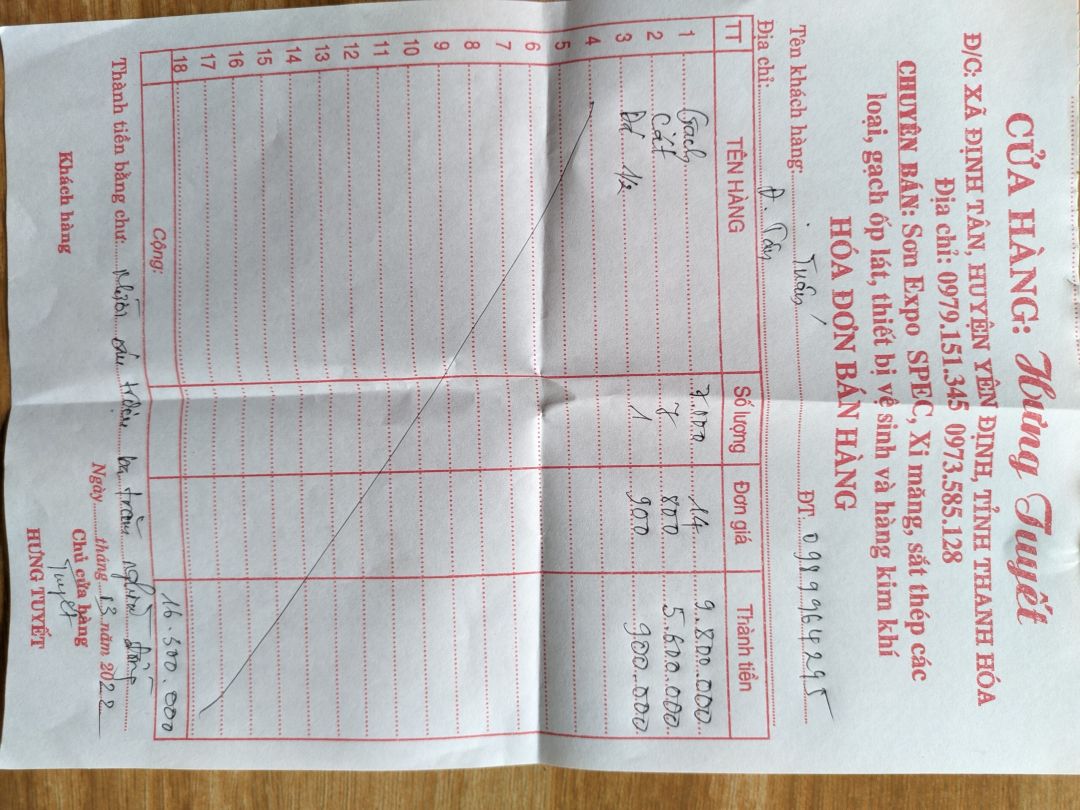 CỬA HÀNG: Hưng Tuyết
Đ/C: XÃ ĐỊNH TÂN, HUYỆN YÊN ĐỊNH, TỈNH THANH HÓA
Địa chỉ: 0979.151.345 0973.585.128
CHUYÊN BÁN: Sơn Expo SPEC, Xi măng, sắt thép các
loại, gạch ốp lát, thiết bị vệ sinh và hàng kim khí
HÓA ĐƠN BÁN HÀNG
Tên khách hàng: Tuấn ĐT 0989964295
Địa chỉ: Đ. Tân
TT TÊN HÀNG Số lượng Đơn giá Thành tiền
1 Gạch 7.000 14 9.800.000
2 Cát 7 800 5.600.000
3 Đá 1/2 1 900 900.000
4
5
6
7
8
9
10
11
12
13
14
15
16
17
18 Cộng: 16.300.000
Thành tiền bằng chữ: Mười sáu triệu ba trăm nghìn đồng
Ngày tháng 13 năm 2022
Khách hàng Chủ cửa hàng
Tuyết
HƯNG TUYẾT